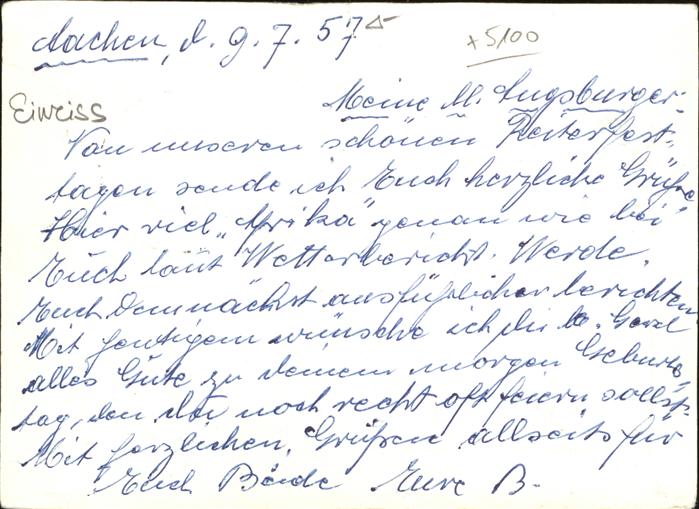 Aachen, d. 9.7.57
+5100
Einreiss
Meine l. Augsburger.
Von unseren schönen Reiterfest-
tagen sende ich Euch herzliche Grüße
Hier viel „Afrika" genau wie bei
Euch laut Wetterbericht. Werde
Euch demnächst ausführlicher berichten
Mit heutigem wünsche ich dir lb.
alles Gute zu deinem morgen Geburts
tag, den du noch recht oft feiern sollst.
Mit herzlichen Grüßen allseits für
Euch Beide Eure B.